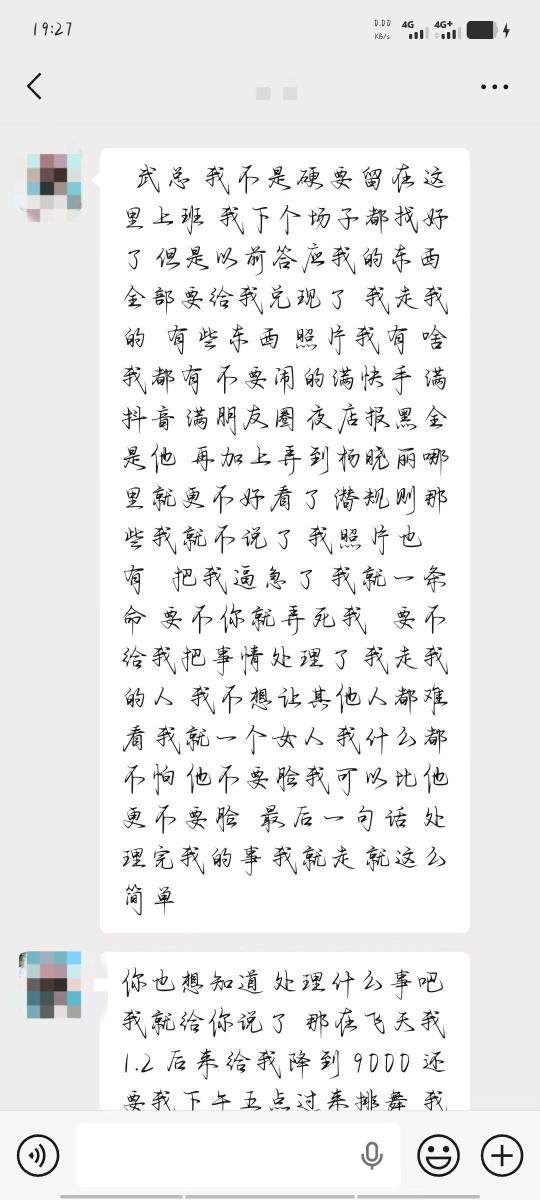 19:27
0.00
KB/s
4G
4G+
武总 我不是硬要留在这
里上班 我下个场子都找好
了 但是以前答应我的东西
全部要给我兑现了 我走我
的 有些东西 照片我有 啥
我都有 不要闹的满快手 满
抖音 满朋友圈 夜店报黑全
是他 再加上弄到杨晓丽哪
里就更不好看了 潜规则那
些我就不说了 我照片也
有 把我逼急了 我就一条
命 要不你就弄死我 要不
给我把事情处理了 我走我
的人 我不想让其他人都难
看 我就一个女人 我什么都
不怕 他不要脸我可以比他
更不要脸 最后一句话 处
理完我的事 我就走 就这么
简单
你也想知道 处理什么事吧
我就给你说了 那在飞天我
1.2 后来给我降到 9000 还
要我下午五点过来排舞 我